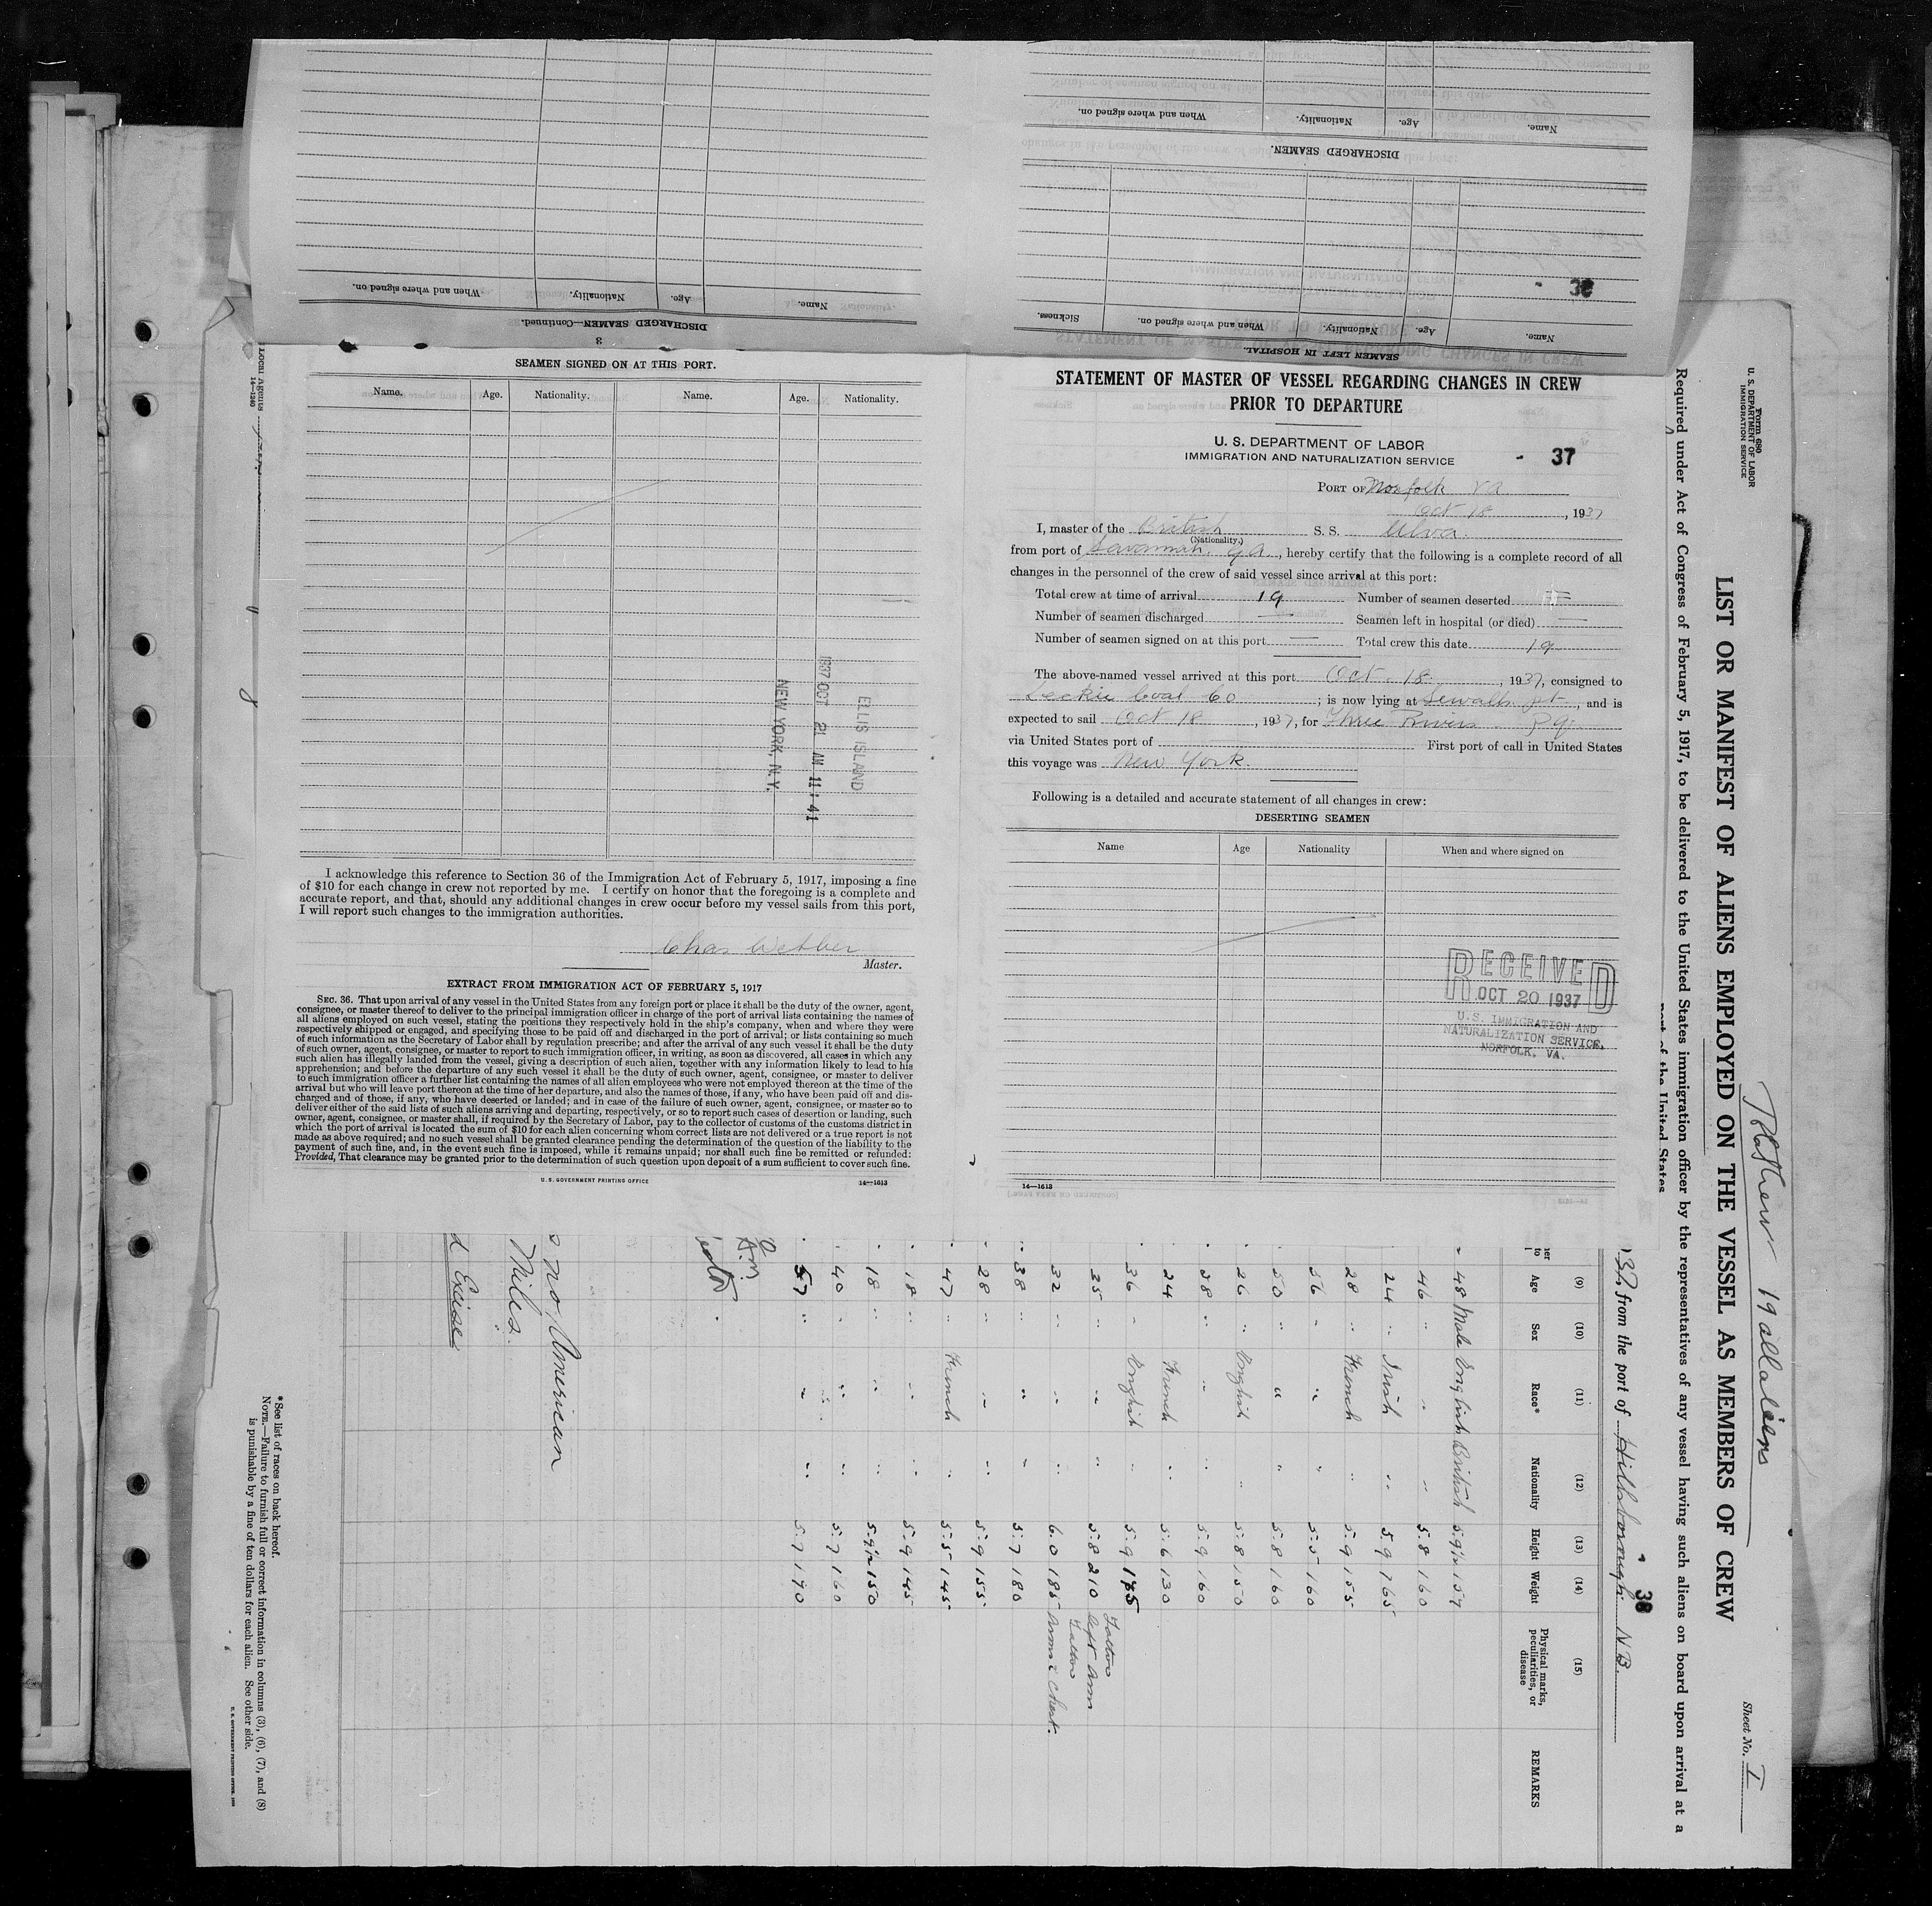 DISCHARGED SEAMEN—Continued.
3
Name. Age. Nationality. When and where signed on.
DISCHARGED SEAMEN.
Name. Age. Nationality. When and where signed on.
SEAMEN LEFT IN HOSPITAL.
Name. Age. Nationality. When and where signed on. Sickness.
- 36
SEAMEN SIGNED ON AT THIS PORT.
Name. Age. Nationality. Name. Age. Nationality.
ELLIS ISLAND
1937 OCT 21 AM 11:41
NEW YORK, N.Y.
I acknowledge this reference to Section 36 of the Immigration Act of February 5, 1917, imposing a fine
of $10 for each change in crew not reported by me. I certify on honor that the foregoing is a complete and
accurate report, and that, should any additional changes in crew occur before my vessel sails from this port,
I will report such changes to the immigration authorities.
Chas
Master.
EXTRACT FROM IMMIGRATION ACT OF FEBRUARY 5, 1917
SEC. 36. That upon arrival of any vessel in the United States from any foreign port or place it shall be the duty of the owner, agent,
consignee, or master thereof to deliver to the principal immigration officer in charge of the port of arrival lists containing the names of
all aliens employed on such vessel, stating the positions they respectively hold in the ship's company, when and where they were
respectively shipped or engaged, and specifying those to be paid off and discharged in the port of arrival; or lists containing so much
of such information as the Secretary of Labor shall by regulation prescribe; and after the arrival of any such vessel it shall be the duty
of such owner, agent, consignee, or master to report to such immigration officer, in writing, as soon as discovered, all cases in which any
such alien has illegally landed from the vessel, giving a description of such alien, together with any information likely to lead to his
apprehension; and before the departure of any such vessel it shall be the duty of such owner, agent, consignee, or master to deliver
to such immigration officer a further list containing the names of all alien employees who were not employed thereon at the time of the
arrival but who will leave port thereon at the time of her departure, and also the names of those, if any, who have been paid off and dis-
charged and of those, if any, who have deserted or landed; and in case of the failure of such owner, agent, consignee, or master so to
deliver either of the said lists of such aliens arriving and departing, respectively, or so to report such cases of desertion or landing, such
owner, agent, consignee, or master shall, if required by the Secretary of Labor, pay to the collector of customs of the customs district in
which the port of arrival is located the sum of $10 for each alien concerning whom correct lists are not delivered or a true report is not
made as above required; and no such vessel shall be granted clearance pending the determination of the question of the liability to the
payment of such fine, and, in the event such fine is imposed, while it remains unpaid; nor shall such fine be remitted or refunded:
Provided, That clearance may be granted prior to the determination of such question upon deposit of a sum sufficient to cover such fine.
U. S. GOVERNMENT PRINTING OFFICE 14—1613
STATEMENT OF MASTER OF VESSEL REGARDING CHANGES IN CREW
PRIOR TO DEPARTURE
U. S. DEPARTMENT OF LABOR
IMMIGRATION AND NATURALIZATION SERVICE
- 37
PORT OF Norfolk Va.
Oct 18, 1937
I, master of the British S. S. Ulva.
(Nationality.)
from port of Savannah, Ga., hereby certify that the following is a complete record of all
changes in the personnel of the crew of said vessel since arrival at this port:
Total crew at time of arrival 19 Number of seamen deserted —
Number of seamen discharged — Seamen left in hospital (or died) —
Number of seamen signed on at this port — Total crew this date 19
The above-named vessel arrived at this port Oct. 18, 1937, consigned to
Leckie Coal Co; is now lying at Sewalls pt, and is
expected to sail Oct 18, 1937, for Three Rivers
via United States port of First port of call in United States
this voyage was New York.
Following is a detailed and accurate statement of all changes in crew:
DESERTING SEAMEN
Name Age Nationality When and where signed on
RECEIVED
OCT 20 1937
U.S. IMMIGRATION AND
NATURALIZATION SERVICE,
NORFOLK, VA.
14—1613
Form 680
U. S. DEPARTMENT OF LABOR
IMMIGRATION SERVICE
Sheet No. I
19 all aliens
LIST OR MANIFEST OF ALIENS EMPLOYED ON THE VESSEL AS MEMBERS OF CREW
Required under Act of Congress of February 5, 1917, to be delivered to the United States immigration officer by the representatives of any vessel having such aliens on board upon arrival at a
port of the United States
37 from the port of Hillsborough N.B.
- 38
(9) (10) (11) (12) (13) (14) (15)
Age Sex Race* Nationality Height Weight Physical marks, peculiarities, or disease REMARKS
48 Male English British 5.9½ 157
46 " " " 5.8 160
24 " Irish " 5.9 165
28 " French " 5.9 155
56 " " " 5.5 160
50 " " " 5.8 160
26 " English " 5.8 150
38 " " " 5.9 160
24 " French " 5.6 130
36 " English " 5.9 175
35 " " " 5.8 210 Tattoo left Arm
32 " " " 6.0 185 Tattoo Arms & Chest.
38 " " " 5.7 180
28 " " " 5.9 155
47 " French " 5.5 145
18 " " " 5.9 145
18 " " " 5.9½ 150
40 " " " 5.7 160
57 " " " 5.7 190
no American
Miles.
d Excise
*See list of races on back hereof.
NOTE.—Failure to furnish full or correct information in columns (3), (6), (7), and (8)
is punishable by a fine of ten dollars for each alien. See other side.
U. S. GOVERNMENT PRINTING OFFICE
Local Agents
14—1240